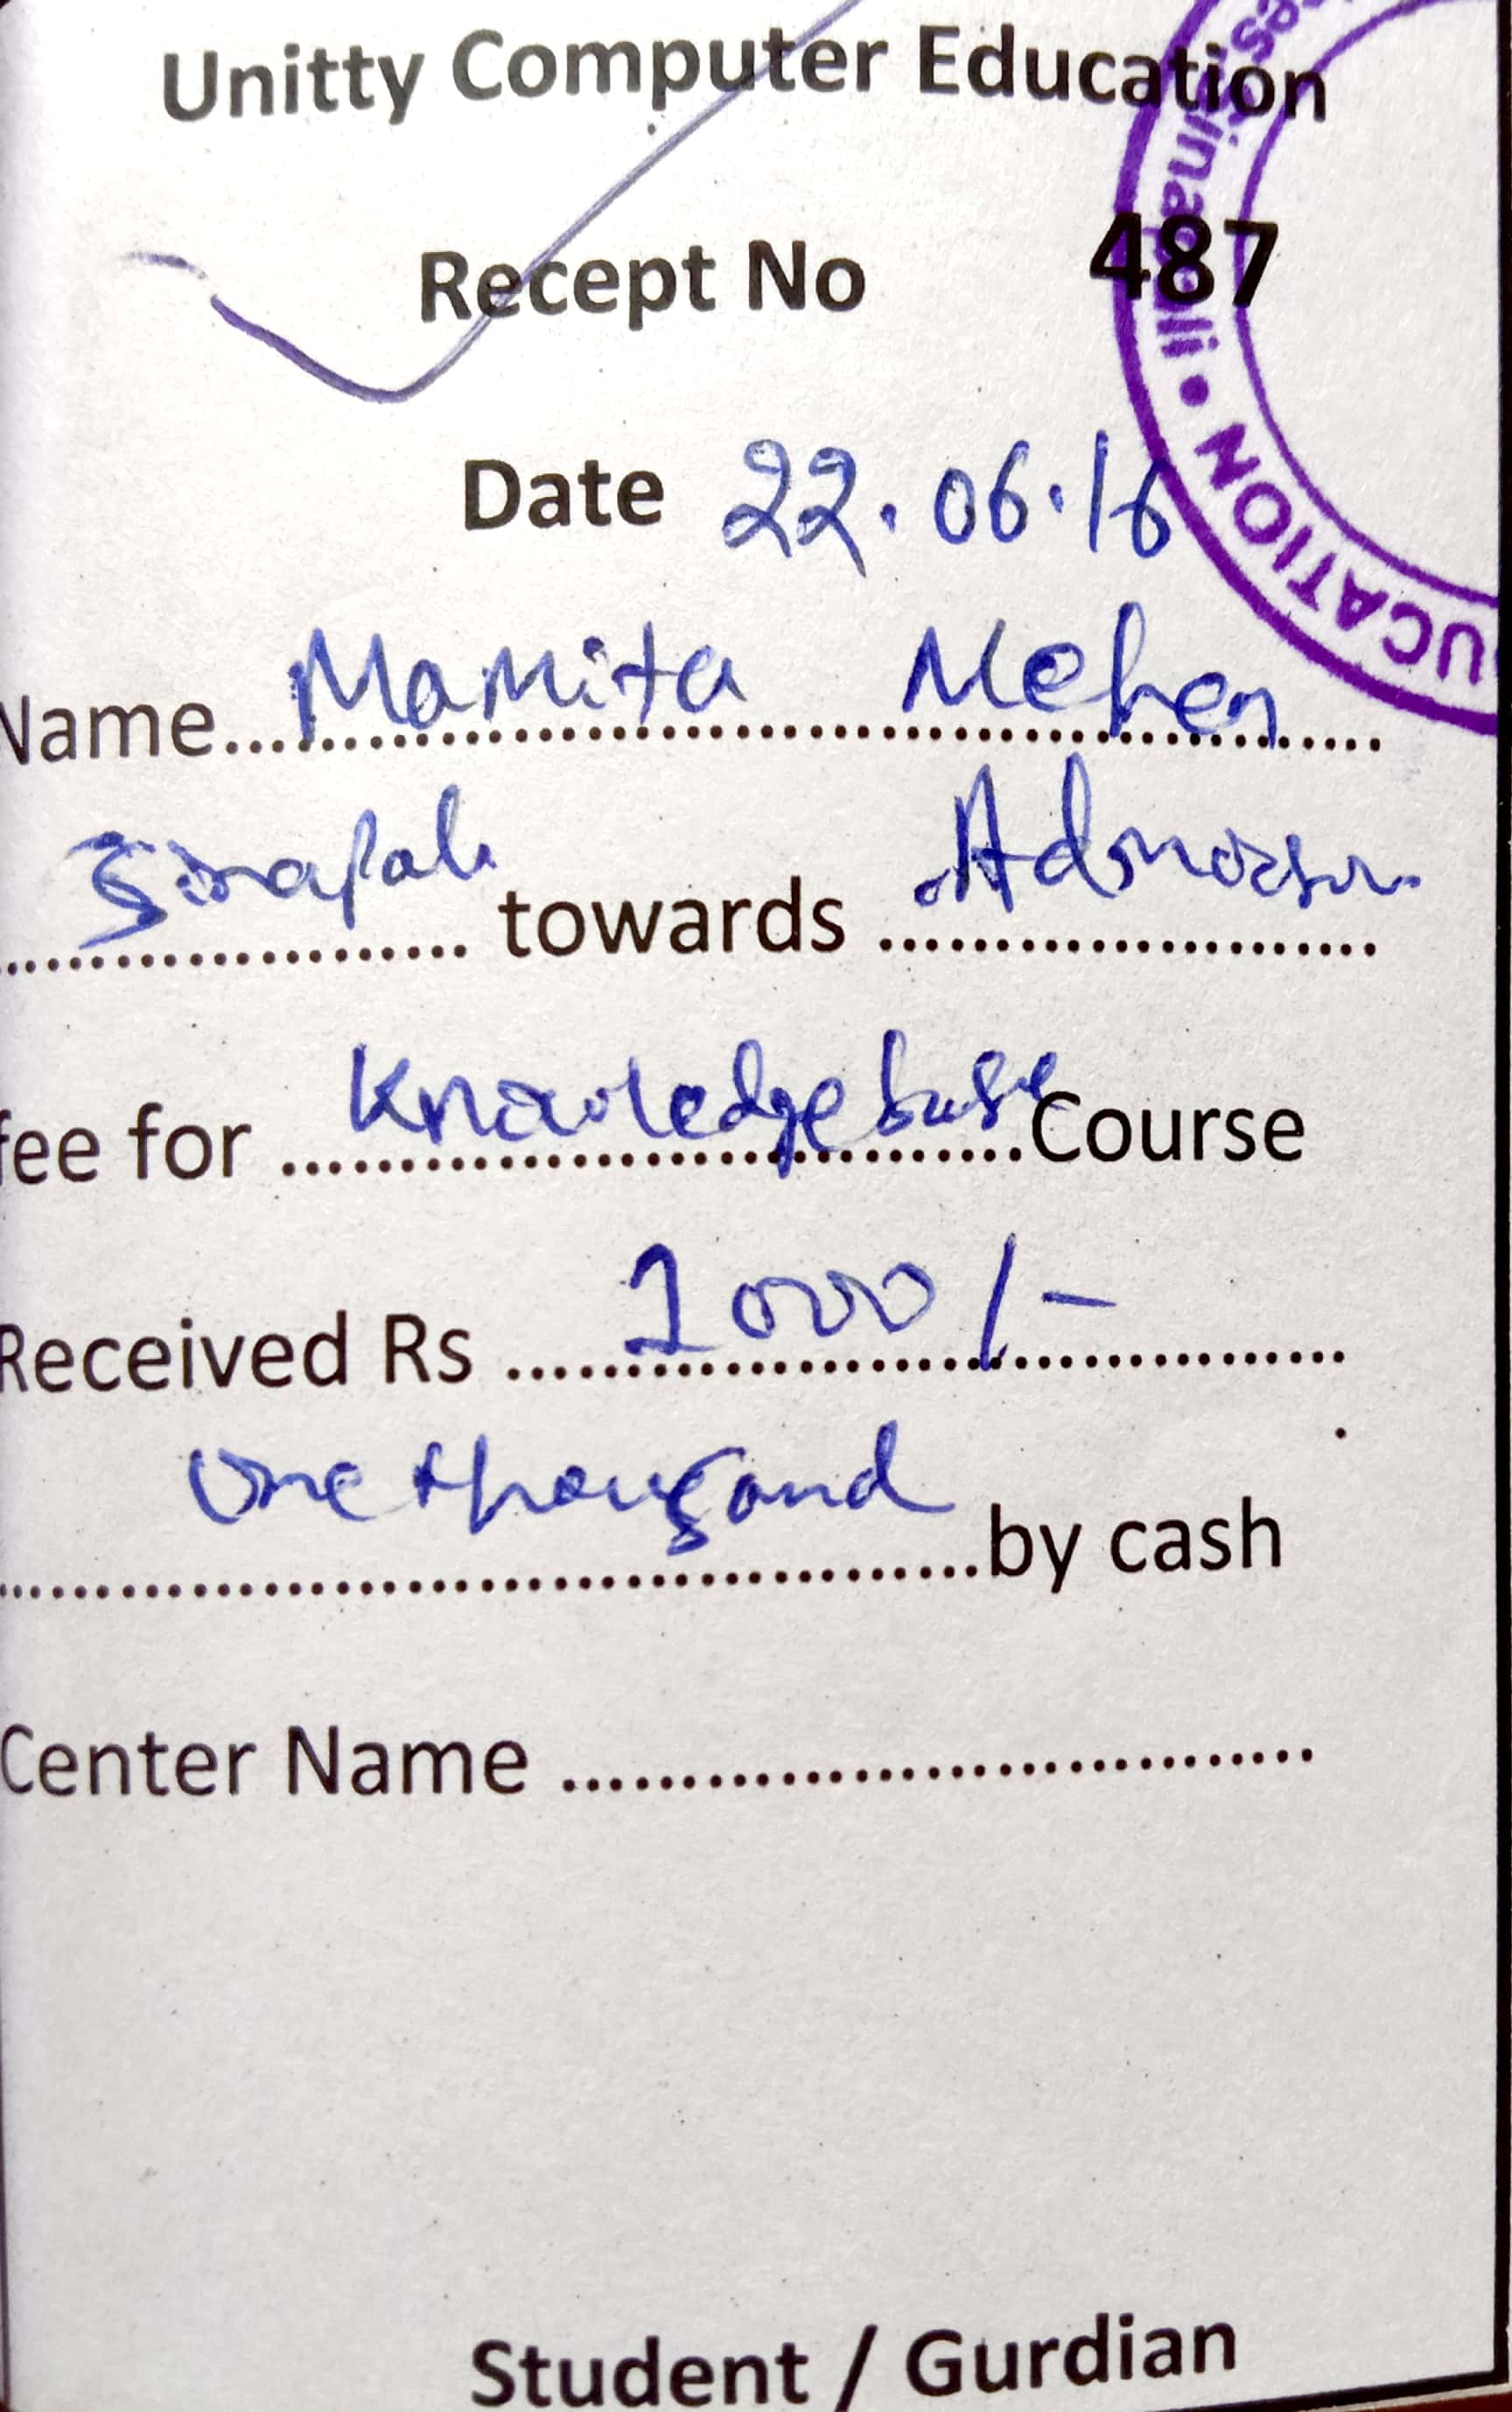 Unitty Computer Education
Recept No 487
Date 22.06.16
Name.......Mamita Meher.......
Sinapali towards Admission
fee for Knowledge base Course
Received Rs 1000/-
One thousand by cash
Center Name ...............................
Student / Gurdian
UCATION